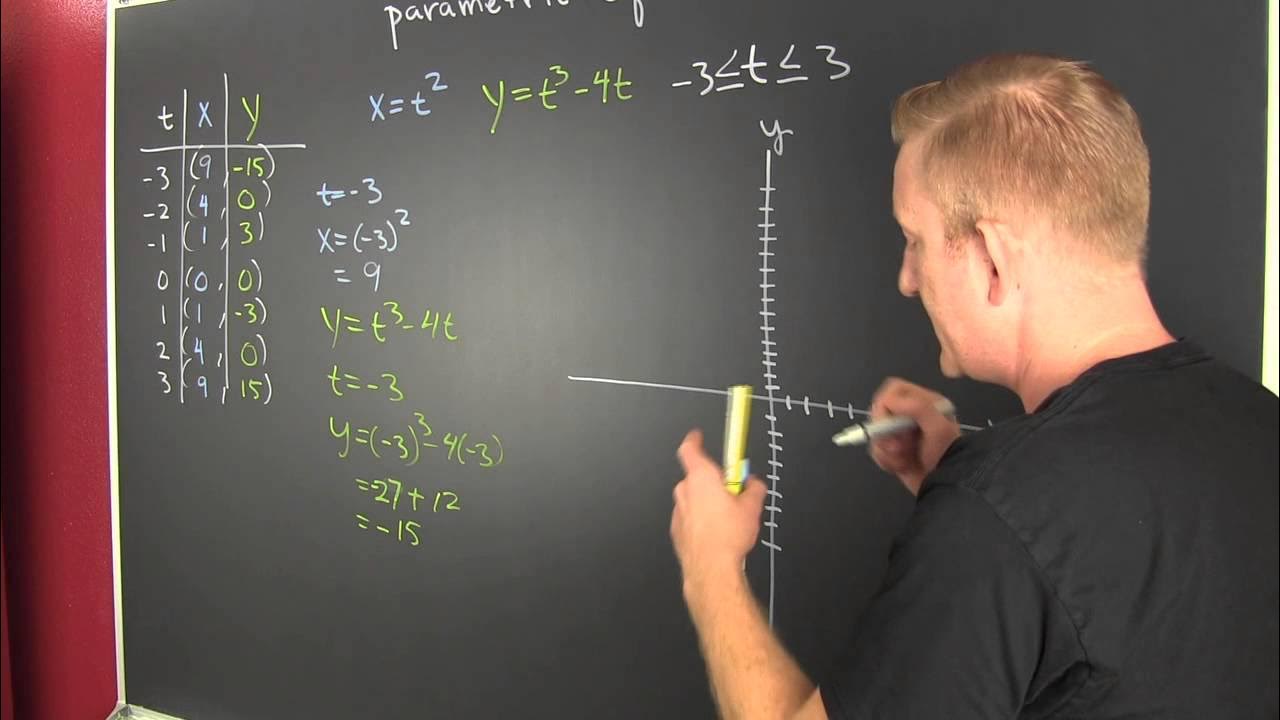 parametric
x=t² y=t³-4t -3≤t≤3
t x y
-3 (9, -15)
-2 (4, 0)
-1 (1, 3)
0 (0, 0)
1 (1, -3)
2 (4, 0)
3 (9, 15)
t=-3
x=(-3)²
= 9
y=t³-4t
t=-3
y=(-3)³-4(-3)
=-27+12
=-15
y